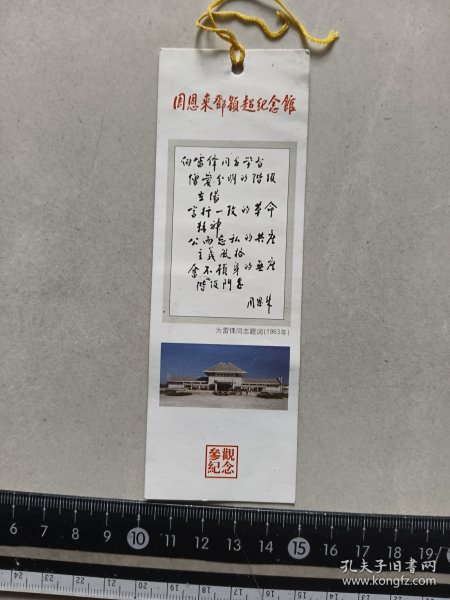 周恩来鄧颖超纪念館
向雷锋同志学习
憎爱分明的阶级
立场
言行一致的革命
精神
公而忘私的共产
主义风格
奋不顾身的无产
阶级斗志
周恩来
为雷锋同志题词(1963年)
參觀
紀念
6 7 8 9 10 11 12 13 14 15 16 17 18 19
24 23 22 21 20
孔夫子旧书网
www.kongfz.com